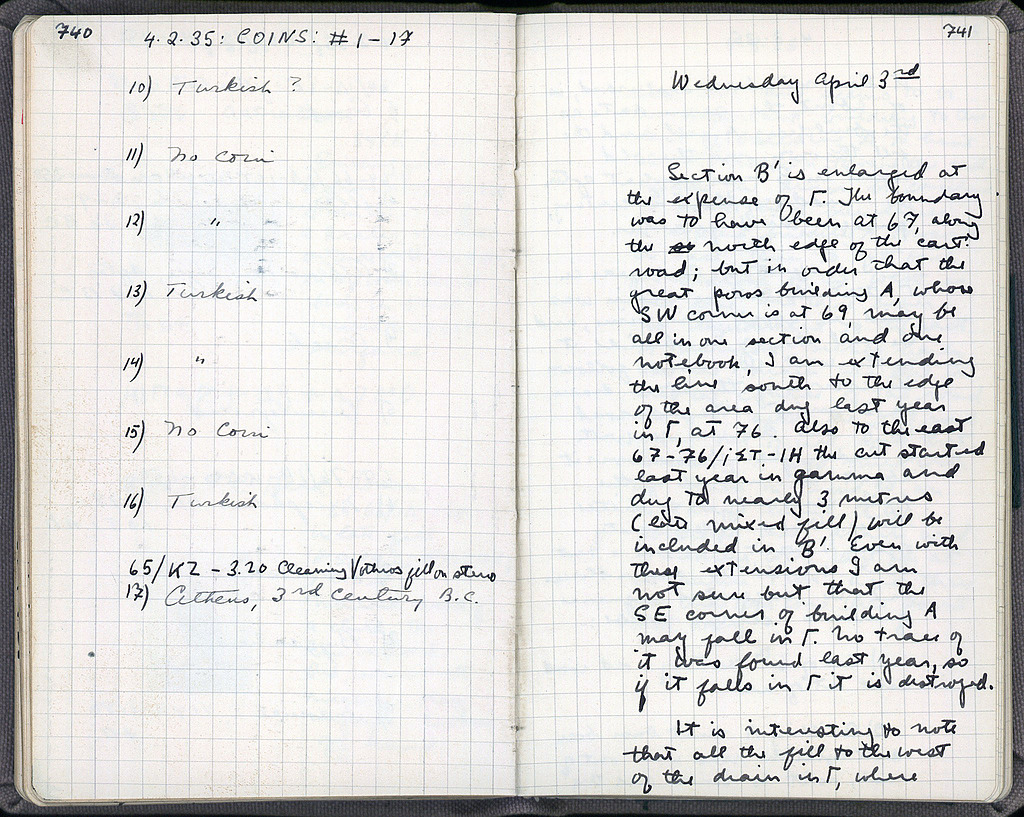 740
4.2.35: COINS: #1-17
10) Turkish ?
11) No coin
12) "
13) Turkish
14) "
15) No coin
16) Turkish
65/ΚΖ - 3.20 Cleaning fill on stereo
17) Athens, 3rd century B.C.
741
Wednesday April 3rd
Section B' is enlarged at
the expense of Γ. The boundary
was to have been at 67, along
the north edge of the cart
road; but in order that the
great poros building A, whose
SW corner is at 69, may be
all in one section and one
notebook, I am extending
the line south to the edge
of the area dug last year
in Γ, at 76. Also to the east
67-76/ΙΣΤ-ΙΗ the cut started
last year in gamma and
dug to nearly 3 metres
(late mixed fill) will be
included in B'. Even with
these extensions I am
not sure but that the
SE corner of building A
may fall in Γ. No trace of
it was found last year, so
if it falls in Γ it is destroyed.
It is interesting to note
that all the fill to the west
of the drain in Γ, where